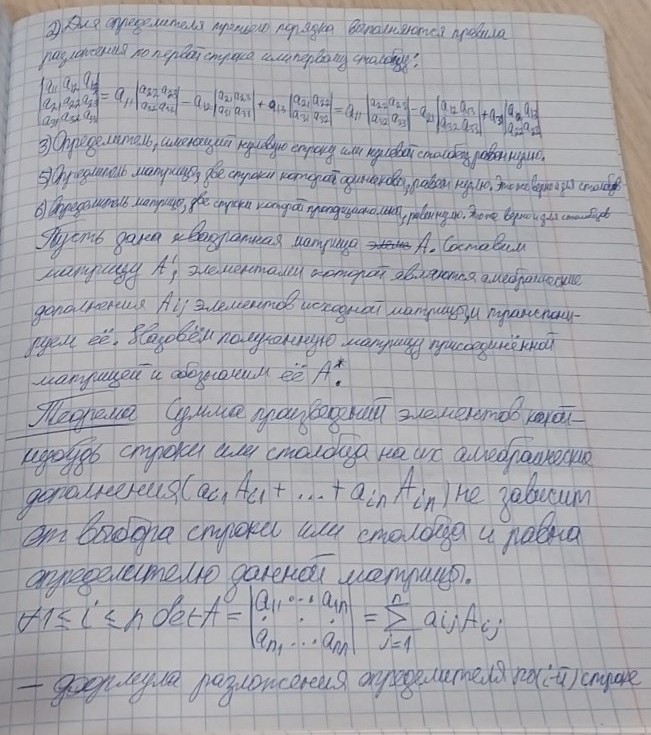 2) Для определителя третьего порядка выполняются правила
разложения по первой строке или первому столбцу:
|a₁₁ a₁₂ a₁₃; a₂₁ a₂₂ a₂₃; a₃₁ a₃₂ a₃₃| = a₁₁ |a₂₂ a₂₃; a₃₂ a₃₃| − a₁₂ |a₂₁ a₂₃; a₃₁ a₃₃| + a₁₃ |a₂₁ a₂₂; a₃₁ a₃₂| = a₁₁ |a₂₂ a₂₃; a₃₂ a₃₃| − a₂₁ |a₁₂ a₁₃; a₃₂ a₃₃| + a₃₁ |a₁₂ a₁₃; a₂₂ a₂₃|
3) Определитель, имеющий нулевую строку или нулевой столбец, равен нулю.
5) Определитель матрицы, две строки которой одинаковы, равен нулю. Это же верно и для столбцов
6) Определитель матрицы, две строки которой пропорциональны, равен нулю. Это же верно и для столбцов
Пусть дана квадратная матрица A. Составим
матрицу A', элементами которой являются алгебраические
дополнения Aij элементов исходной матрицы, и транспони-
руем её. Назовём полученную матрицу присоединённой
матрицей и обозначим её A*.
Теорема Сумма произведений элементов какой-
нибудь строки или столбца на их алгебраические
дополнения (ai1 Ai1 + ... + ain Ain) не зависит
от выбора строки или столбца и равна
определителю данной матрицы.
∀1 ≤ i ≤ n det A = |a₁₁ ... a₁n; . . .; an₁ ... ann| = ∑ⁿ j=1 aij Aij
– формула разложения определителя по (i-й) строке